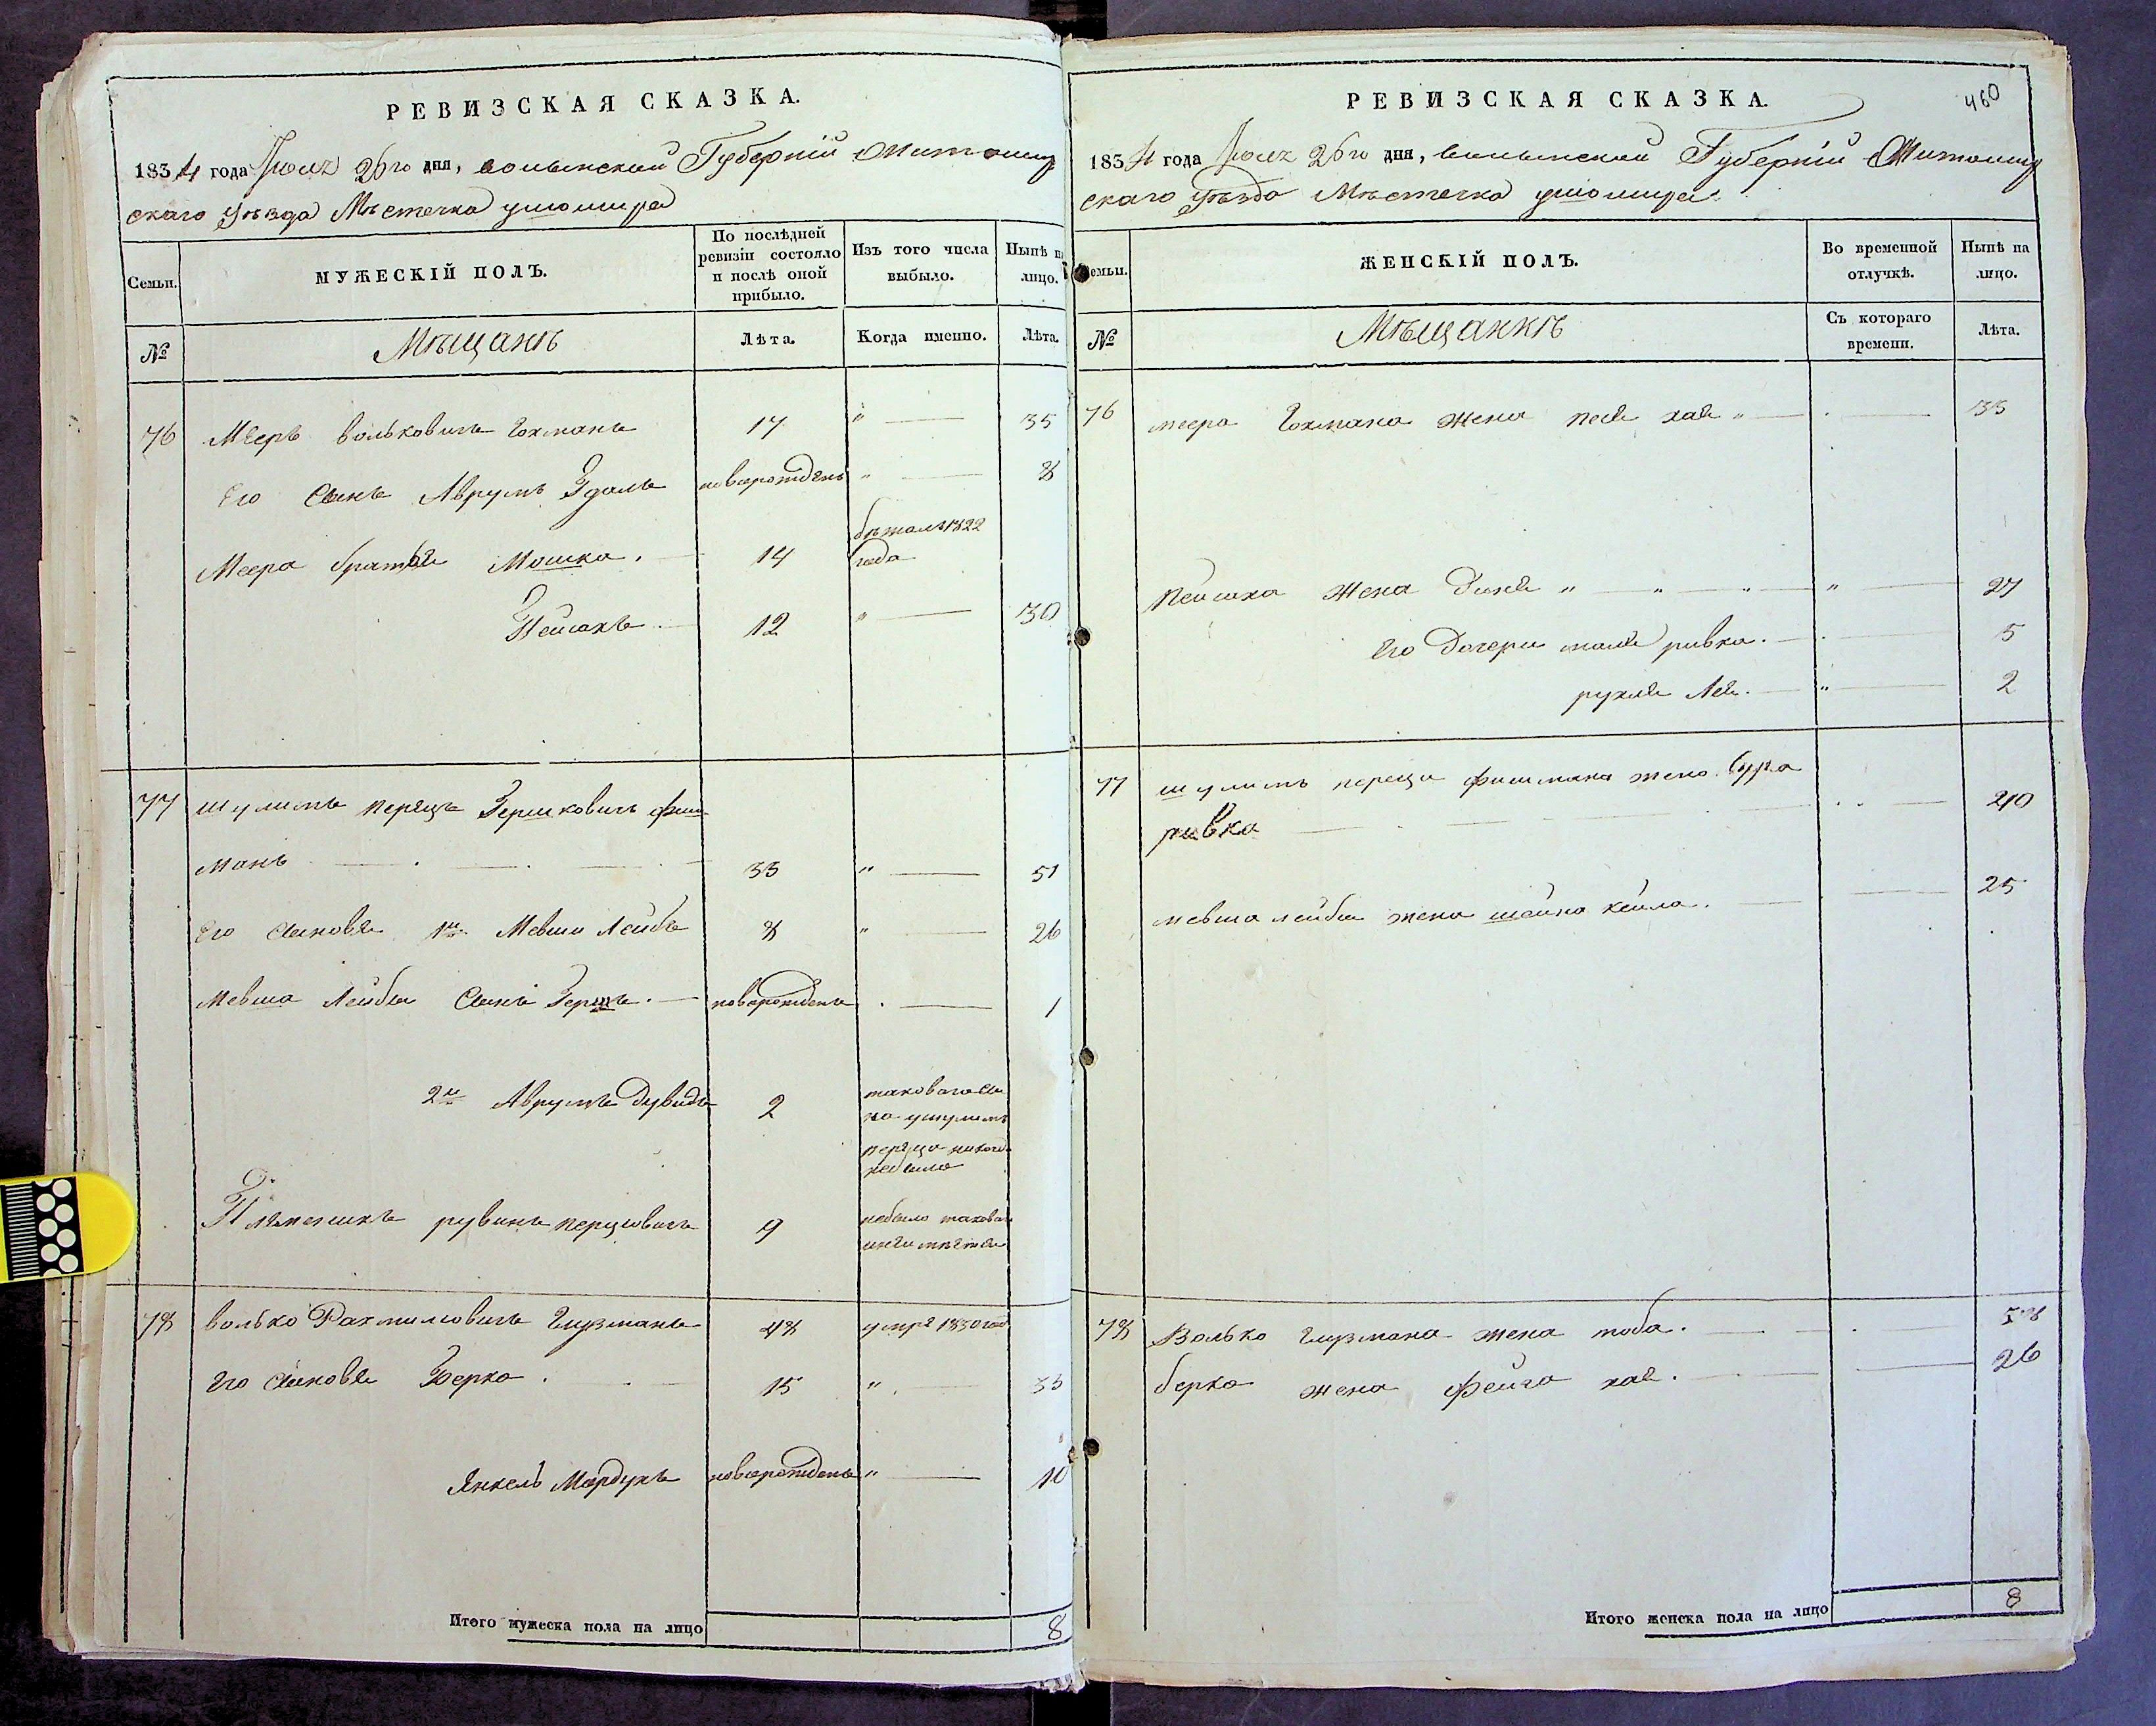 РЕВИЗСКАЯ СКАЗКА.
1834 года 26го дня, волынской Губерніи Житомир
скаго уѣзда Мѣстечка ушомира
Семьи.
МУЖЕСКІЙ ПОЛЪ.
По послѣдней ревизіи состояло и послѣ оной прибыло.
Изъ того числа выбыло.
Нынѣ на лицо.
№
Мѣщанѣ
Лѣта.
Когда именно.
Лѣта.
76 Мееръ вольковичъ Гохманъ 17 " 35
Его Сынъ Аврумъ новорожденъ " 8
бѣжалъ 1822
Меера братья Мошко. 14 года
Пейсахъ 12 " 30
77 шулимъ перецъ Гершковичъ фиш
манъ 33 " 51
Его Сыновья 1й Мевши Лейбъ 8 " 26
Мевша Лейбы Сынъ Гершъ. новорожденъ 1
2й Аврумъ Дувидъ 2 таковаго сы
на ушулимъ
переца никогда
небыло
Племеникъ рувинъ перцовичъ 9 небыло таковаго
78 волько Рахмиловичъ Глузманъ 48 умре 1830 года
Его Сыновья Берко. 15 " 33
Янкель Мордухъ новорожденъ " 10
Итого мужеска пола на лицо 8
460
РЕВИЗСКАЯ СКАЗКА.
1834 года 26го дня, волынской Губерніи Житомир
скаго уѣзда Мѣстечка ушомира.
Семьи.
ЖЕНСКІЙ ПОЛЪ.
Во временной отлучкѣ.
Нынѣ на лицо.
№
Мѣщанкѣ
Съ котораго времени.
Лѣта.
76 меера Гохмана жена песя хая " 35
Пейсаха жена Диня " " 27
Его Дочери малка ривка. 5
рухля Лея. " 2
77 шулимъ переца фишмана жена Сура
ривка 40
мевша лейбы жена шейна кейла. 25
78 Волько Глузмана жена тоба. 58
берка жена фейга хая. 26
Итого женска пола на лицо 8